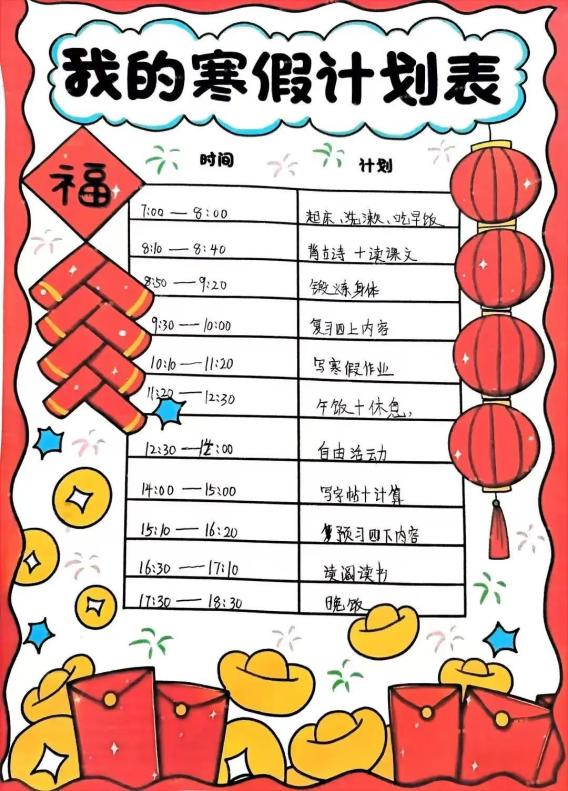 我的寒假计划表
福
时间 计划
7:00 — 8:00 起床、洗漱、吃早饭
8:10 — 8:40 背古诗 + 读课文
8:50 — 9:20 锻炼身体
9:30 — 10:00 复习四上内容
10:10 — 11:20 写寒假作业
11:20 — 12:30 午饭 + 休息、
12:30 — :00 自由活动
14:00 — 15:00 写字帖 + 计算
15:10 — 16:20 预习四下内容
16:30 — 17:10 读书
17:30 — 18:30 晚饭